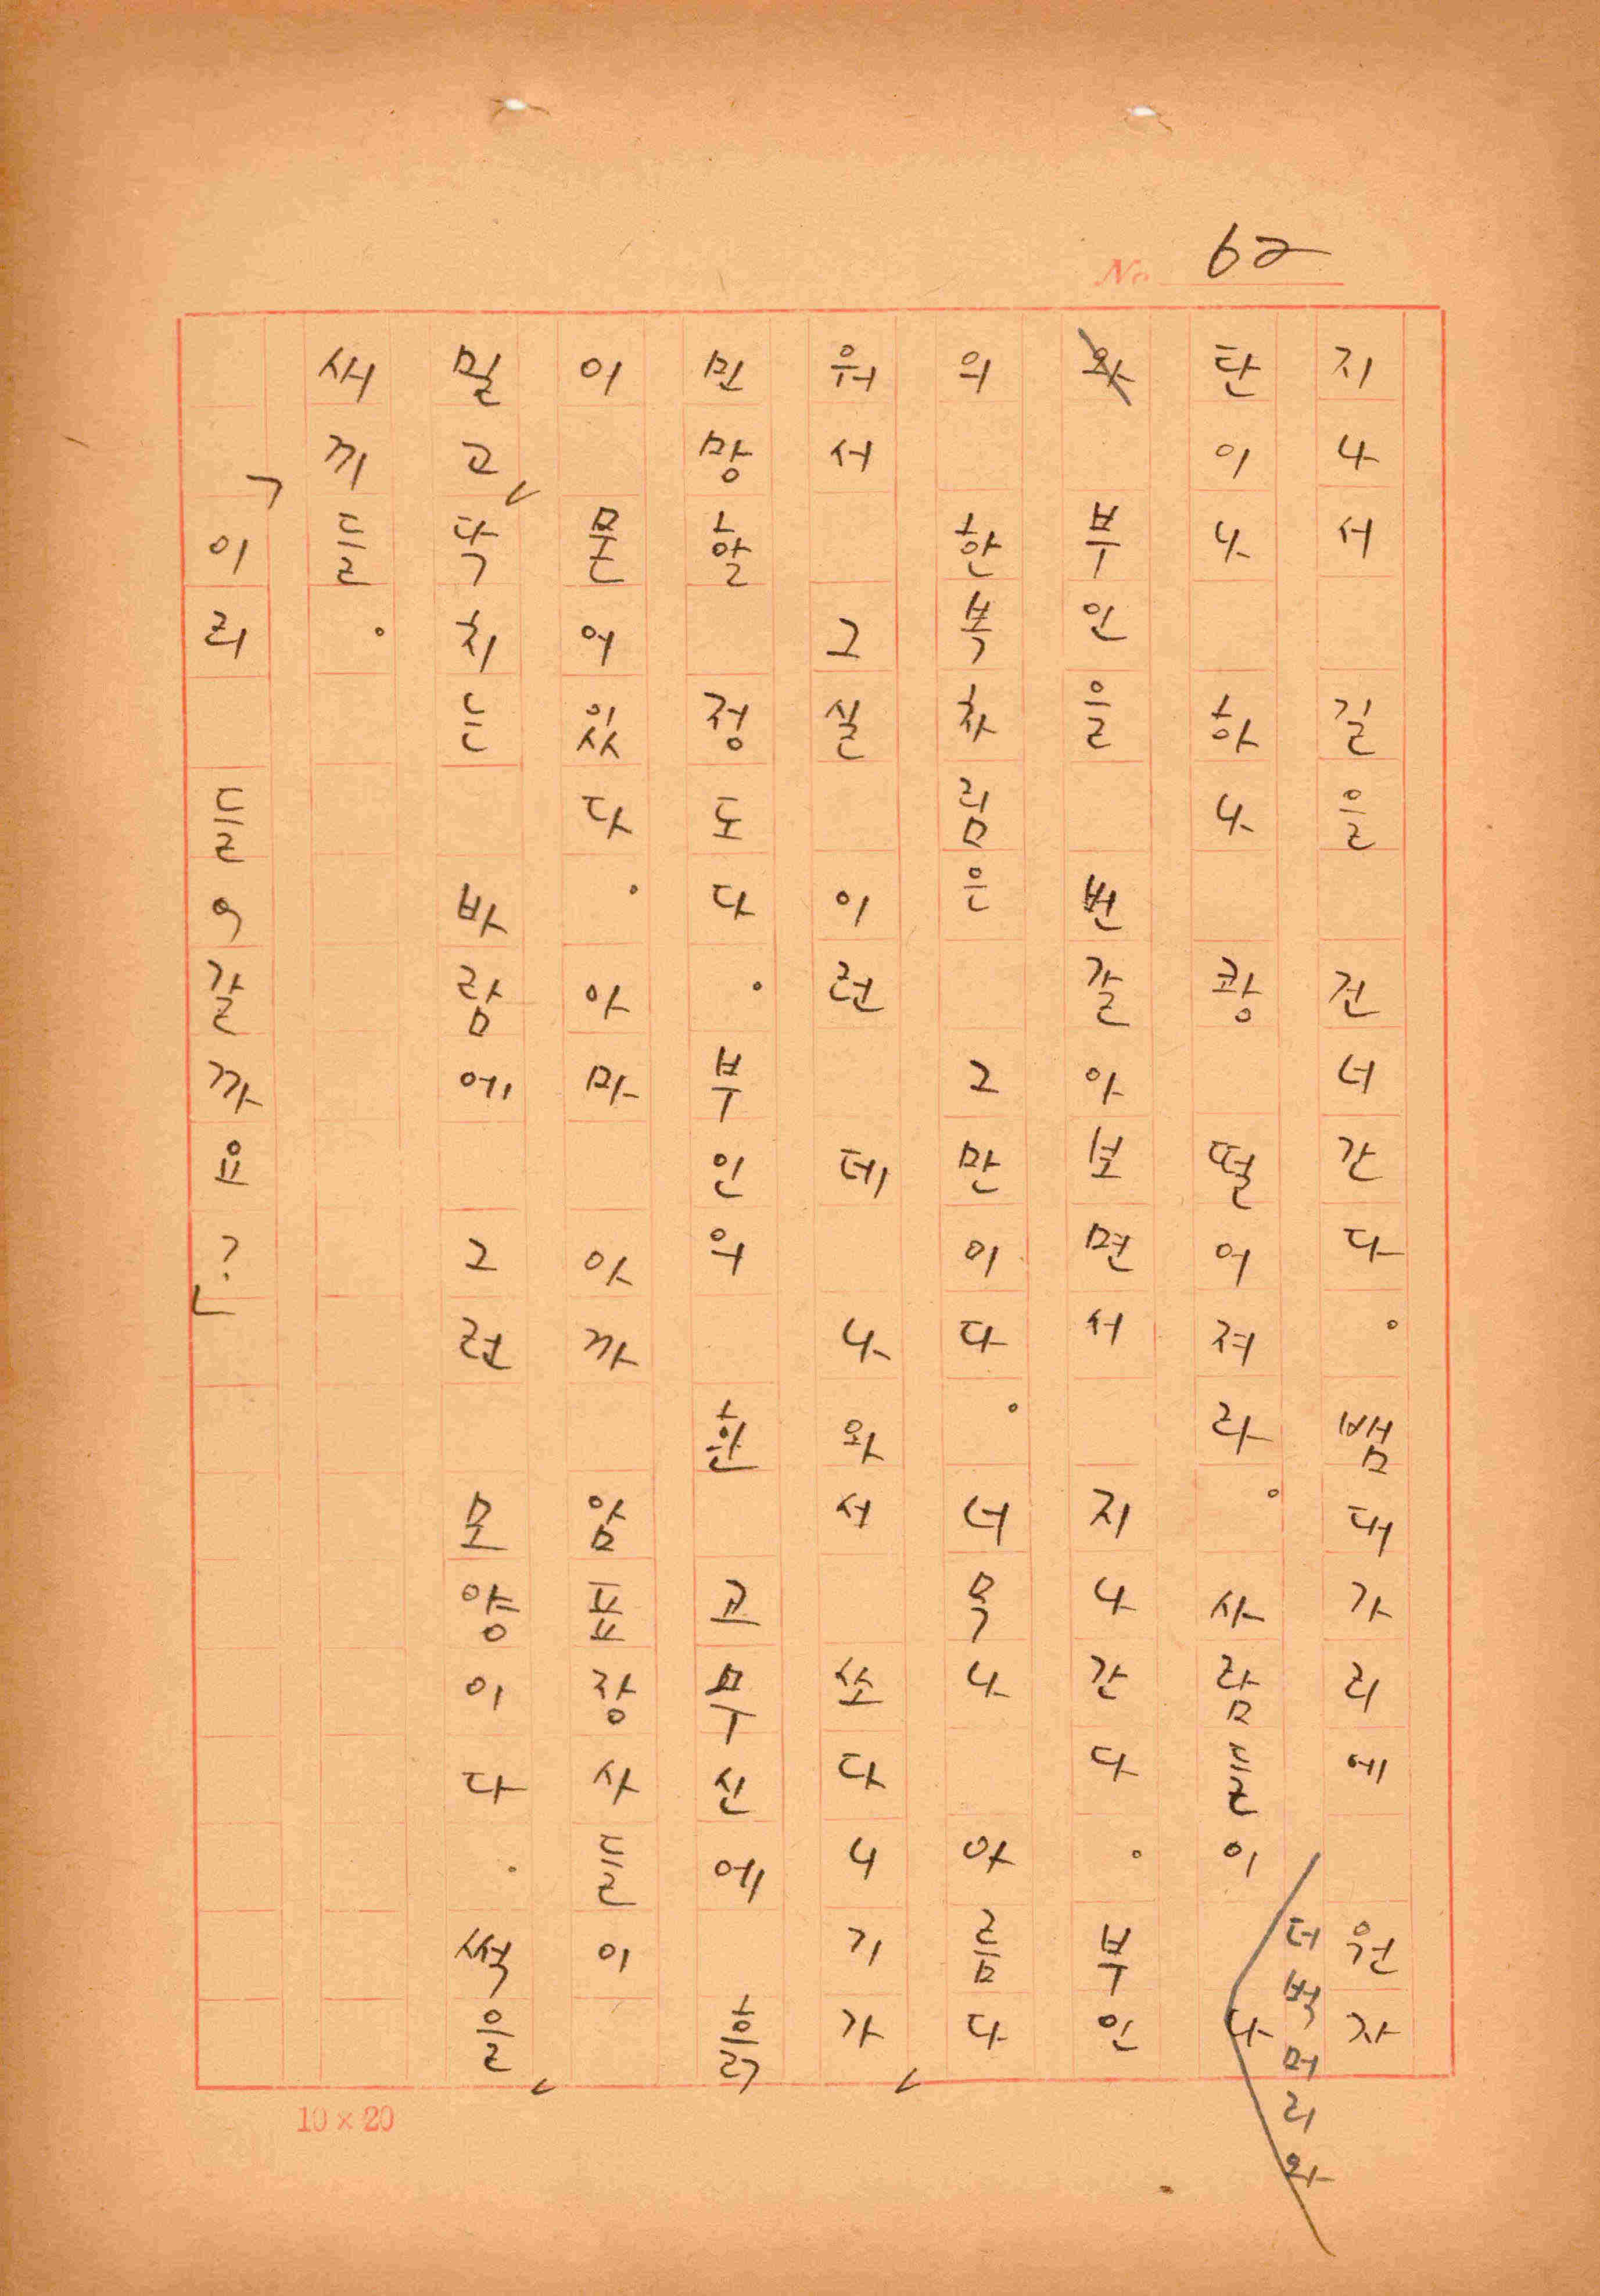 No. 62
지나서 길을 건너간다. 뱀대가리에 원자
탄이나 하나 쾅 떨어져라. 사람들이 나
더벅머리와
와 부인을 번갈아보면서 지나간다. 부인
의 한복차림은 그만이다. 너무나 아름다
워서 그실 이런 데 나와서 쏘다니기가,
민망할 정도다. 부인의 흰 고무신에 흙
이 묻어있다. 아마 아까 암표장사들이
밀고, 닥치는 바람에 그런 모양이다. 썩을,
새끼들.
「이리 들어갈까요?」
10 × 20